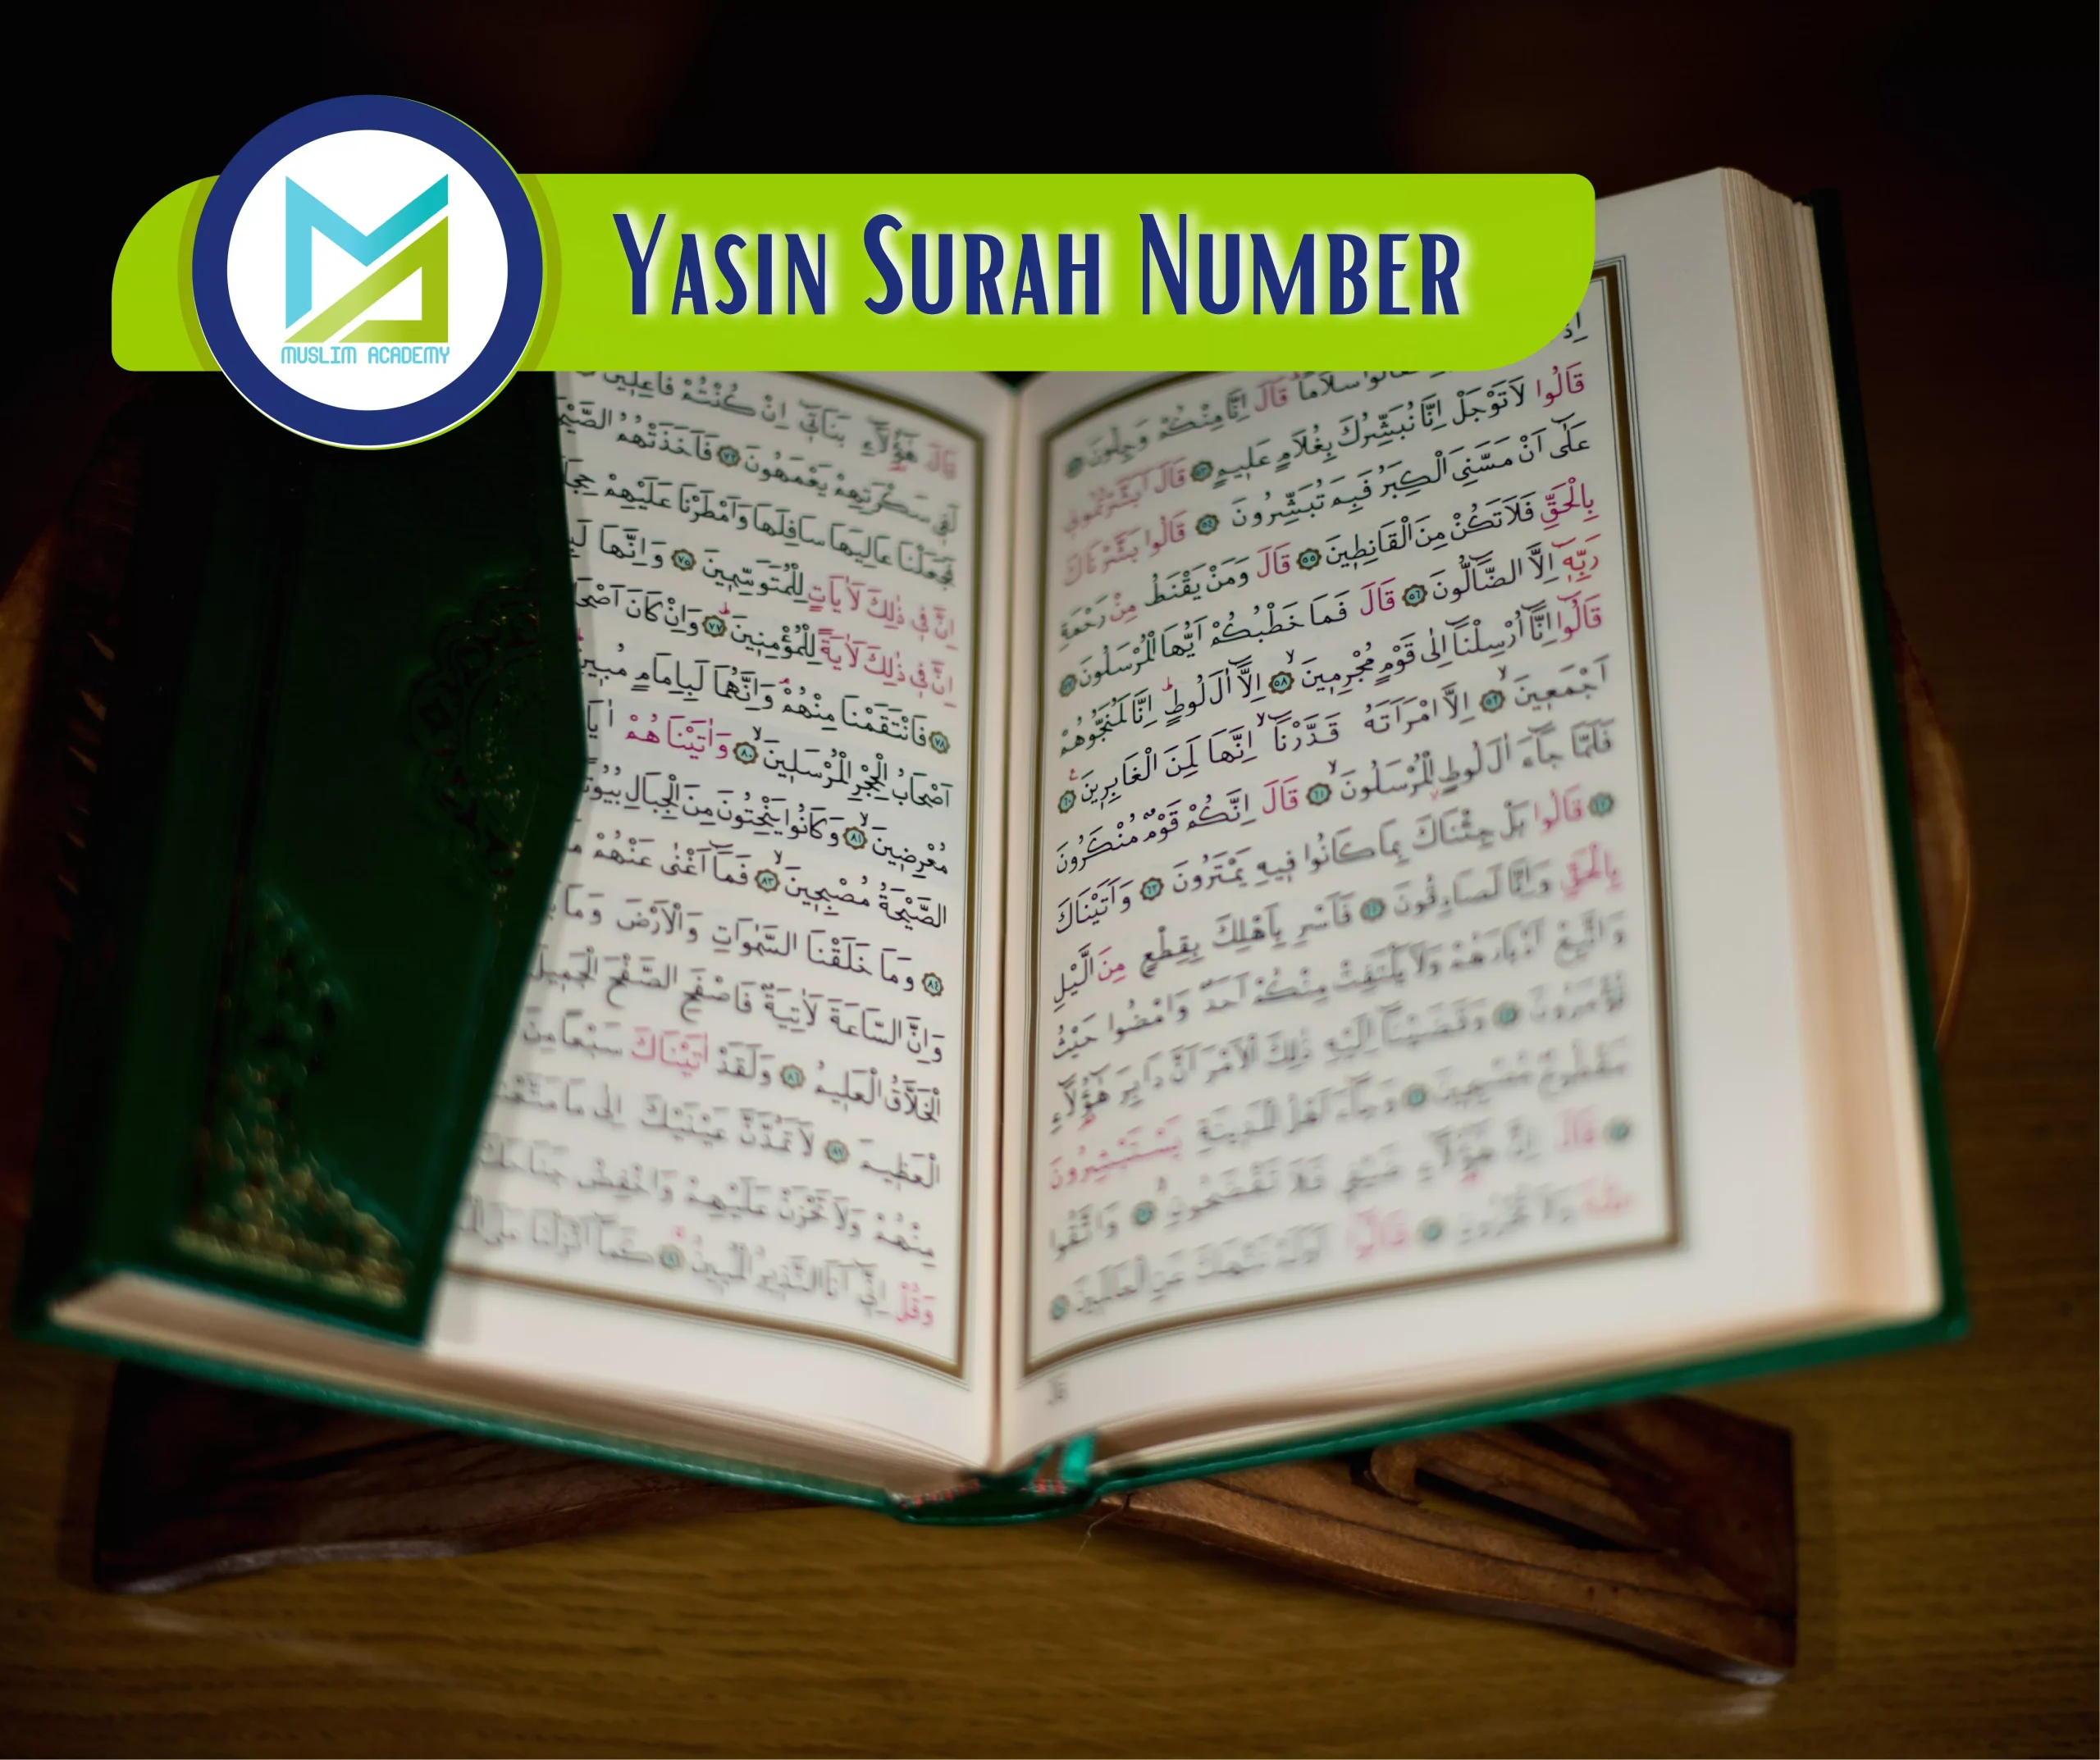 MUSLIM ACADEMY
YASIN SURAH NUMBER
سَلَامًا قَالَ اِنَّا مِنْكُمْ وَجِلُونَ
قَالُوا لَا تَوْجَلْ اِنَّا نُبَشِّرُكَ بِغُلَامٍ عَلِيمٍ ٥٣ قَالَ اَبَشَّرْتُمُونِي
عَلٰٓى اَنْ مَسَّنِيَ الْكِبَرُ فَبِمَ تُبَشِّرُونَ ٥٤ قَالُوا بَشَّرْنَاكَ
بِالْحَقِّ فَلَا تَكُنْ مِنَ الْقَانِطِينَ ٥٥ قَالَ وَمَنْ يَقْنَطُ مِنْ رَحْمَةِ
رَبِّهٖٓ اِلَّا الضَّٓالُّونَ ٥٦ قَالَ فَمَا خَطْبُكُمْ اَيُّهَا الْمُرْسَلُونَ ٥٧
قَالُٓوا اِنَّٓا اُرْسِلْنَٓا اِلٰى قَوْمٍ مُجْرِمِينَۙ ٥٨ اِلَّٓا اٰلَ لُوطٍۜ اِنَّا لَمُنَجُّوهُمْ
اَجْمَعِينَۙ ٥٩ اِلَّا امْرَاَتَهُ قَدَّرْنَٓاۙ اِنَّهَا لَمِنَ الْغَابِرِينَ ٦٠
فَلَمَّا جَٓاءَ اٰلَ لُوطٍ الْمُرْسَلُونَۙ ٦١ قَالَ اِنَّكُمْ قَوْمٌ مُنْكَرُونَ
٦٢ قَالُوا بَلْ جِئْنَاكَ بِمَا كَانُوا فِيهِ يَمْتَرُونَ ٦٣ وَاَتَيْنَاكَ
بِالْحَقِّ وَاِنَّا لَصَادِقُونَ ٦٤ فَاَسْرِ بِاَهْلِكَ بِقِطْعٍ مِنَ الَّيْلِ
وَاتَّبِعْ اَدْبَارَهُمْ وَلَا يَلْتَفِتْ مِنْكُمْ اَحَدٌ وَامْضُوا حَيْثُ
تُؤْمَرُونَ ٦٥ وَقَضَيْنَٓا اِلَيْهِ ذٰلِكَ الْاَمْرَ اَنَّ دَابِرَ هٰٓؤُ۬لَٓاءِ
مَقْطُوعٌ مُصْبِحِينَ ٦٦ وَجَٓاءَ اَهْلُ الْمَدِينَةِ يَسْتَبْشِرُونَ
٦٧ قَالَ اِنَّ هٰٓؤُ۬لَٓاءِ ضَيْفِي فَلَا تَفْضَحُونِۙ ٦٨ وَاتَّقُوا
وَلَا تُخْزُونِ ٦٩ قَالُٓوا اَوَلَمْ نَنْهَكَ عَنِ الْعَالَمِينَ ٧٠
قَالَ هٰٓؤُ۬لَٓاءِ بَنَاتِٓي اِنْ كُنْتُمْ فَاعِلِينَ
لَفِي سَكْرَتِهِمْ يَعْمَهُونَ ٧٢ فَاَخَذَتْهُمُ
فَجَعَلْنَا عَالِيَهَا سَافِلَهَا وَاَمْطَرْنَا عَلَيْهِمْ
اِنَّ فِي ذٰلِكَ لَاٰيَاتٍ لِلْمُتَوَسِّمِينَ ٧٥ وَاِنَّهَا
اِنَّ فِي ذٰلِكَ لَاٰيَةً لِلْمُؤْمِنِينَۜ ٧٧ وَاِنْ كَانَ
٧٨ فَانْتَقَمْنَا مِنْهُمْۢ وَاِنَّهُمَا لَبِاِمَامٍ مُبِينٍ
اَصْحَابُ الْحِجْرِ الْمُرْسَلِينَۙ ٨٠ وَاٰتَيْنَاهُمْ
مُعْرِضِينَۙ ٨١ وَكَانُوا يَنْحِتُونَ مِنَ الْجِبَالِ
الصَّيْحَةُ مُصْبِحِينَۙ ٨٣ فَمَٓا اَغْنٰى عَنْهُمْ
٨٤ وَمَا خَلَقْنَا السَّمٰوَاتِ وَالْاَرْضَ وَمَا
وَاِنَّ السَّاعَةَ لَاٰتِيَةٌ فَاصْفَحِ الصَّفْحَ الْجَمِيلَ
الْخَلَّاقُ الْعَلِيمُ ٨٦ وَلَقَدْ اٰتَيْنَاكَ سَبْعًا مِنَ
الْعَظِيمَ ٨٧ لَا تَمُدَّنَّ عَيْنَيْكَ اِلٰى مَا
مِنْهُمْ وَلَا تَحْزَنْ عَلَيْهِمْ وَاخْفِضْ جَنَاحَكَ
وَقُلْ اِنِّٓي اَنَا النَّذِيرُ الْمُبِينُۚ ٨٩ كَمَٓا اَنْزَلْنَا